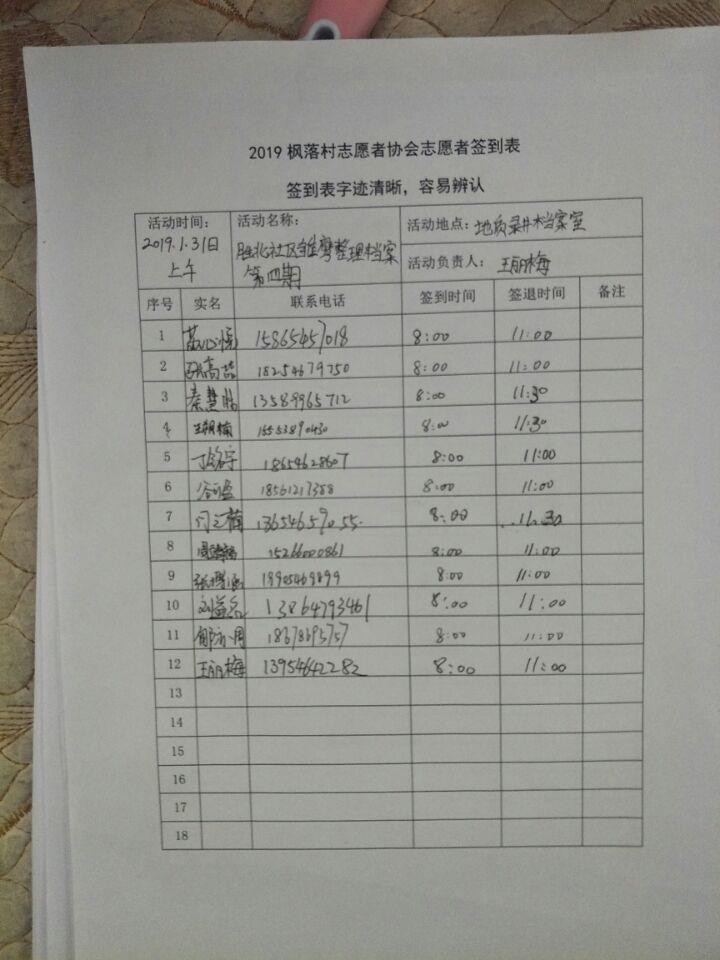 2019 枫落村志愿者协会志愿者签到表
签到表字迹清晰，容易辨认
活动时间： 2019.1.31日 上午
活动名称： 胜北社区 整理档案 第四期
活动地点：地质录井档案室
活动负责人： 王丽梅
序号 实名 联系电话 签到时间 签退时间 备注
1 15865457018 8:00 11:00
2 18254679750 8:00 11:00
3 秦慧 13589965712 8:00 11:30
4 8:00 11:30
5 丁铭宇 18654628607 8:00 11:00
6 18561217388 8:00 11:00
7 闫 13654659055 8:00 11:30
8 15266000861 8:00 11:00
9 张 18905469899 8:00 11:00
10 刘益 13864793461 8:00 11:00
11 8:00 11:00
12 王丽梅 13954642282 8:00 11:00
13
14
15
16
17
18